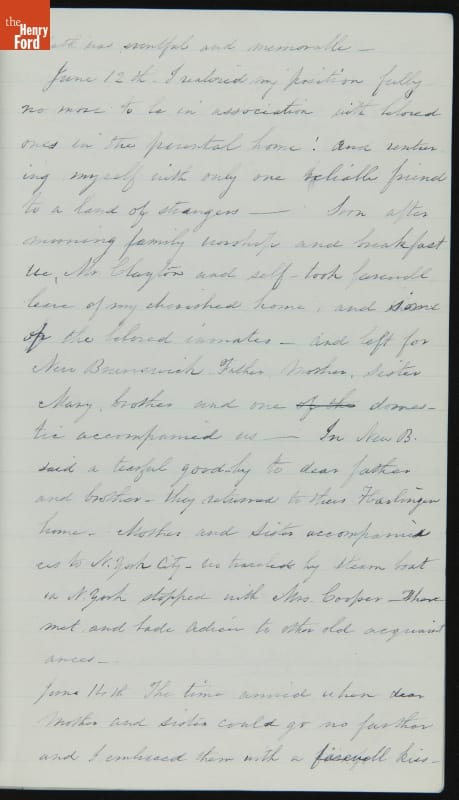 the
Henry
Ford
was eventful and memorable —
June 12th. I realized my position fully
no more to be in association with beloved
ones in the parental home! and ventur
ing myself with only one reliable friend
to a land of strangers — Soon after
morning family worship and breakfast
we, Mr. Clayton and self - took farewell
leave of my cherished home, and some
of the beloved inmates — and left for
New Brunswick Father, Mother, Sister
Mary, brother and one of the domes-
tic accompanied us — In New B.
said a tearful good-by to dear father
and brother - they returned to their Harlingen
home. Mother and Sister accompanied
us to N. York City - we traveled by steam boat
in N. York stopped with Mrs. Cooper - Where
met and bade adieu to other old acquaint
ances —
June 14th The time arrived when dear
Mother and sister could go no farther
and I embraced them with a farewell kiss -